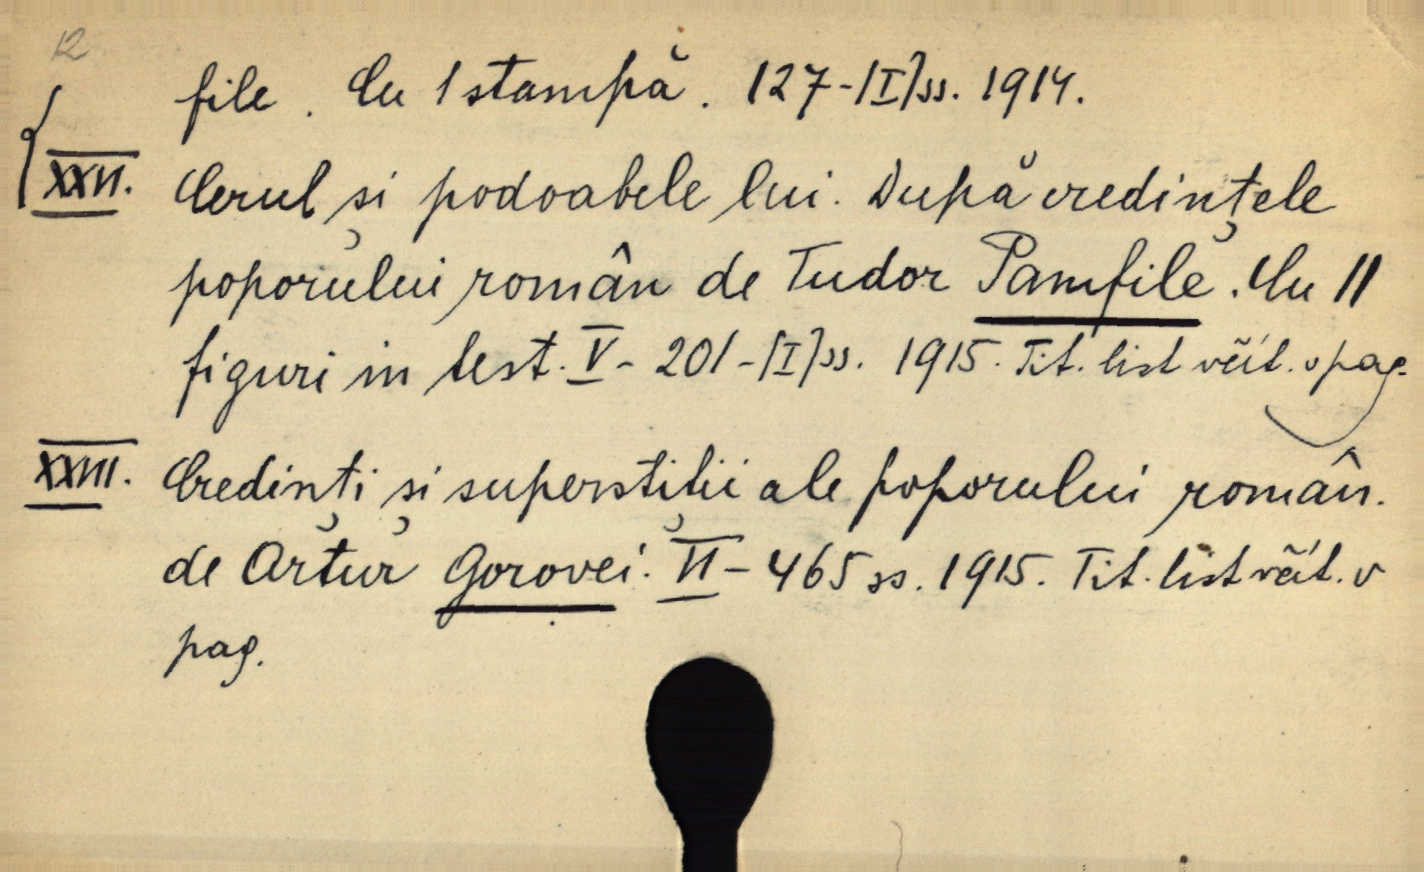 12
file. Cu 1 stampă. 127-[I] ss. 1914.
XXVI. Cerul și podoabele lui. După credințele
poporului român de Tudor Pamfile. Cu 11
figuri in test. V - 201-[I] ss. 1915. Tit. list văit. v pag.
XXVII. Credinți și superstiții ale poporului român.
de Artur Gorovei. VI - 465 ss. 1915. Tit. list văit. v
pag.